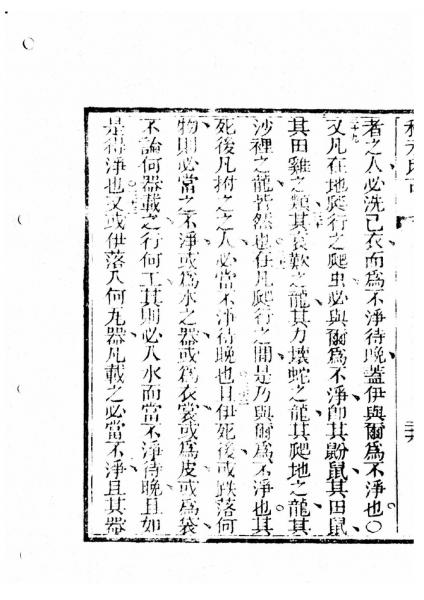 者之人必洗己衣而爲不淨待晚蓋伊與爾爲不淨也〇
又凡在地爬行之爬虫必與爾爲不淨卽其鼢鼠其田鼠
其田雞之類其哀歎之龍其力壞蛇之龍其爬地之龍其
沙裡之龍皆然在凡爬行之間是乃與爾爲不淨也其
死後凡拊之之人必當不淨待晚也且伊死後或跌落何
物則必當之不淨或爲木之器或爲衣裳或爲皮或爲袋
不論何器載之行何工其則必入水而當不淨待晚且如
是得淨也又或伊落入何瓦器凡載之必當不淨且其器